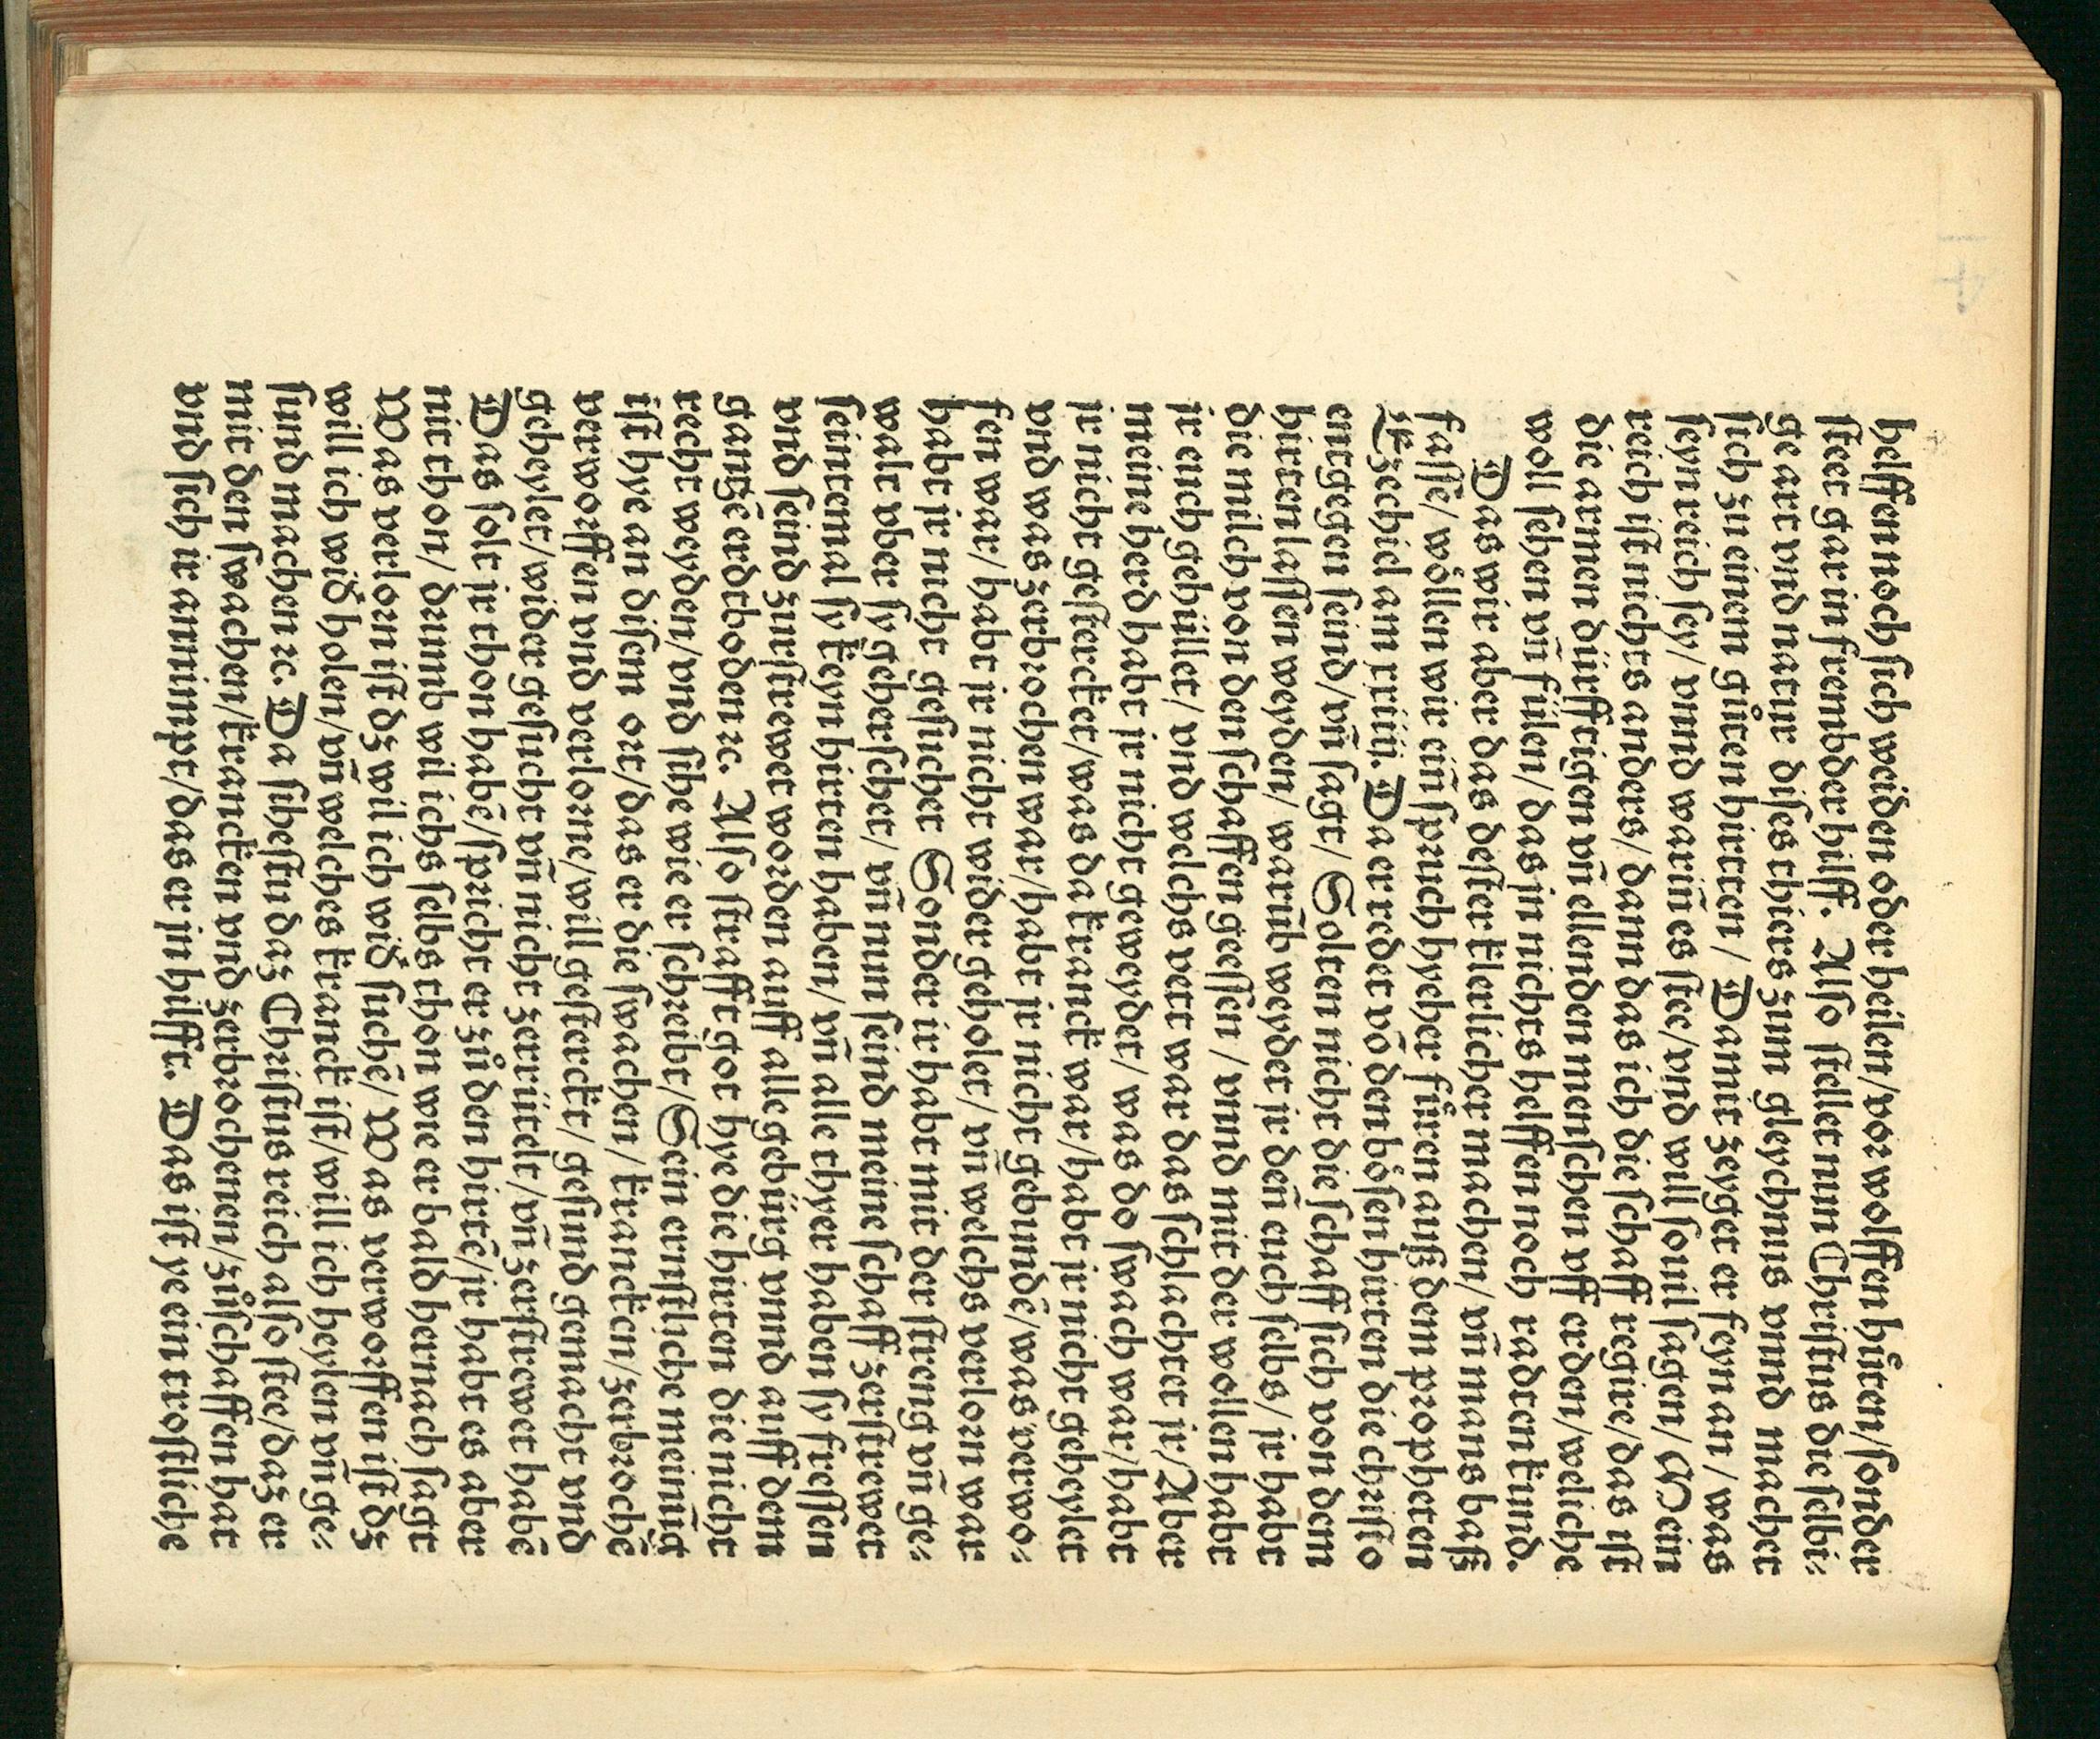 helffen noch sich weiden oder heilen/vor wolffen hůten/sonder
steet gar in frembder hilff. Also stellet nun Christus die selbi⸗
ge art vnd natur dises thiers zum gleychnus vnnd machet
sich zu einem gůten hirtten/ Damit zeyget er feyn an/ was
seyn reich sey/ vnnd warũ es stee/vnd will souil sagen/ Mein
reich ist nichts anders/ dann das ich die schaff regire/das ist
die armen dürfftigen vñ ellenden menschen vff erden/weliche
woll sehen vñ fülen/ das jn nichts helffen noch radten kund.
Das wir aber das dester klerlicher machen/ vñ mans baß
fasse/ wöllen wir eĩ spruch hyeher fůren auß dem propheten
Ezechiel am xxxiiij. Da er redet võ den bösen hirten die christo
entgegen seind/vñ sagt/ Solten nicht die schaff sich von dem
hirten lassen weyden/ warũb weydet jr deñ euch selbs/ jr habt
die milch von den schaffen geessen/ vnnd mit der wollen habt
jr euch gehüllet/ vnd welchs vett war das schlachtet jr/Aber
meine herd habt jr nicht geweydet/ was do swach war/habt
jr nicht gestercket/was da kranck war/habt jr nicht geheylet
vnd was zerbrochen war/habt jr nicht gebundẽ/was verwo⸗
fen war/habt jr nicht wider geholet/ vñ welchs verlorn war
habt jr nicht gesuchet Sonder ir habt mit der streng vñ ge⸗
walt vber sy geherschet/ vñ nun seind meine schaff zerstrewet
seintemal sy keyn hirten haben/ vñ alle thyer haben sy fressen
vnd seind zurstrewet worden auff alle gebürg vnnd auff dem
gantzẽ erdtboden ꝛc. Also strafft got hye die hirten die nicht
recht weyden/vnd sihe wie er schreibt/Sein ernstliche meinũg
ist hye an disem ort/das er die swachen/ krancken/zerbrochẽ
verworffen vnd verlorne/will gesterckt/ gesund gemacht vnd
geheylet/wider gesucht vñ nicht zerrütelt/vñ zerstrewet habẽ
Das solt jr thon habẽ/spricht er zů den hirtẽ/jr habt es aber
nit thon/ drumb wil ichs selbs thon wie er bald hernach sagt
Was verlorn ist dz wil ich wid̕ suchẽ/ Was verworffen ist dz
will ich wid̕ holen/vñ welches kranck ist/will ich heylen vñ ge⸗
sund machen ꝛc. Da sihestu daz Christus reich also stee/daz er
mit den swachen/krancken vnd zerbrochenen/zůschaffen hat
vnd sich ir annimpt/das er jn hilfft. Das ist ye ein trostliche